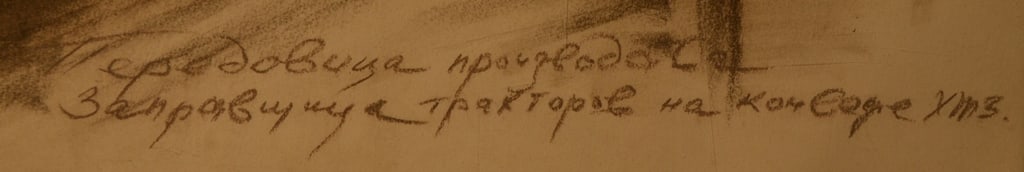 Передовица производства
Заправщица тракторов на конвейере ХТЗ.